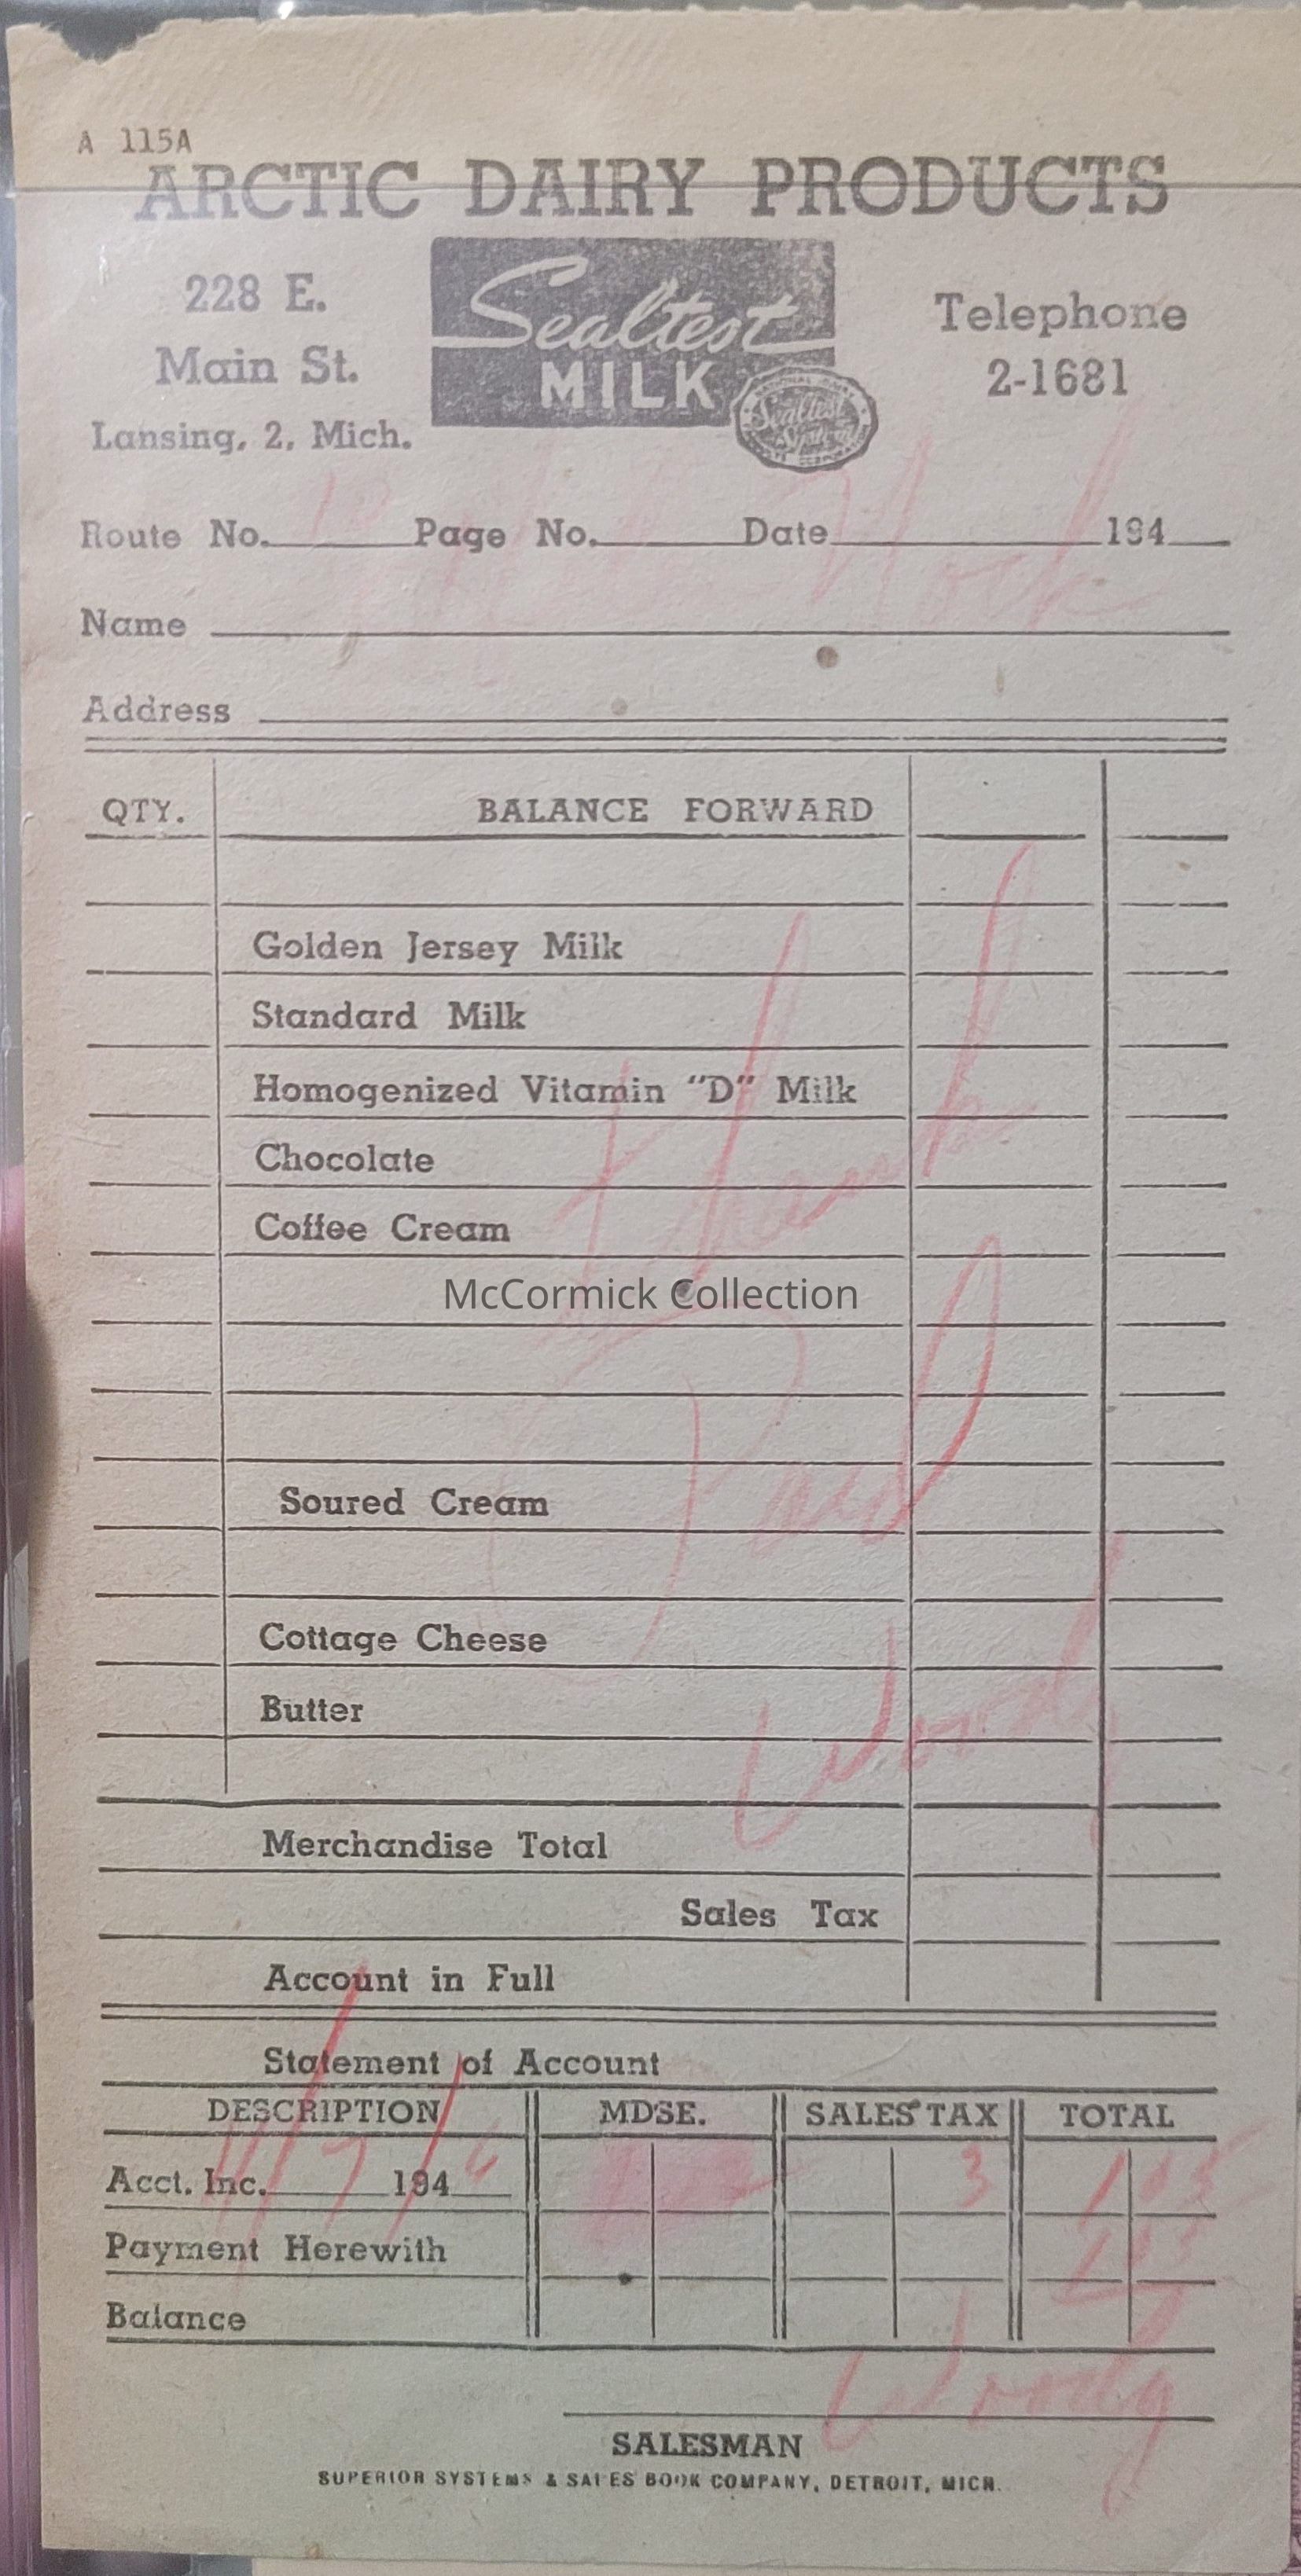 A 115A
ARCTIC DAIRY PRODUCTS
228 E.
Main St.
Lansing, 2, Mich.
Sealtest
MILK
Sealtest
System
Telephone
2-1681
Route No. Page No. Date 194
Name
Address
QTY. BALANCE FORWARD
Golden Jersey Milk
Standard Milk
Homogenized Vitamin "D" Milk
Chocolate
Coffee Cream
McCormick Collection
Paid
Soured Cream
Cottage Cheese
Butter
Woody
Merchandise Total
Sales Tax
Account in Full
Statement of Account
DESCRIPTION MDSE. SALES TAX TOTAL
Acct. Inc. 194 3
Payment Herewith
Balance
Woody
SALESMAN
SUPERIOR SYSTEMS & SALES BOOK COMPANY, DETROIT, MICH.